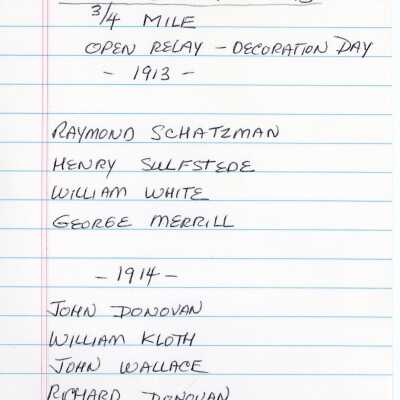 3/4 MILE
OPEN RELAY - DECORATION DAY
- 1913 -
RAYMOND SCHATZMAN
HENRY SULFSTEDE
WILLIAM WHITE
GEORGE MERRILL
- 1914 -
JOHN DONOVAN
WILLIAM KLOTH
JOHN WALLACE
RICHARD DONOVAN